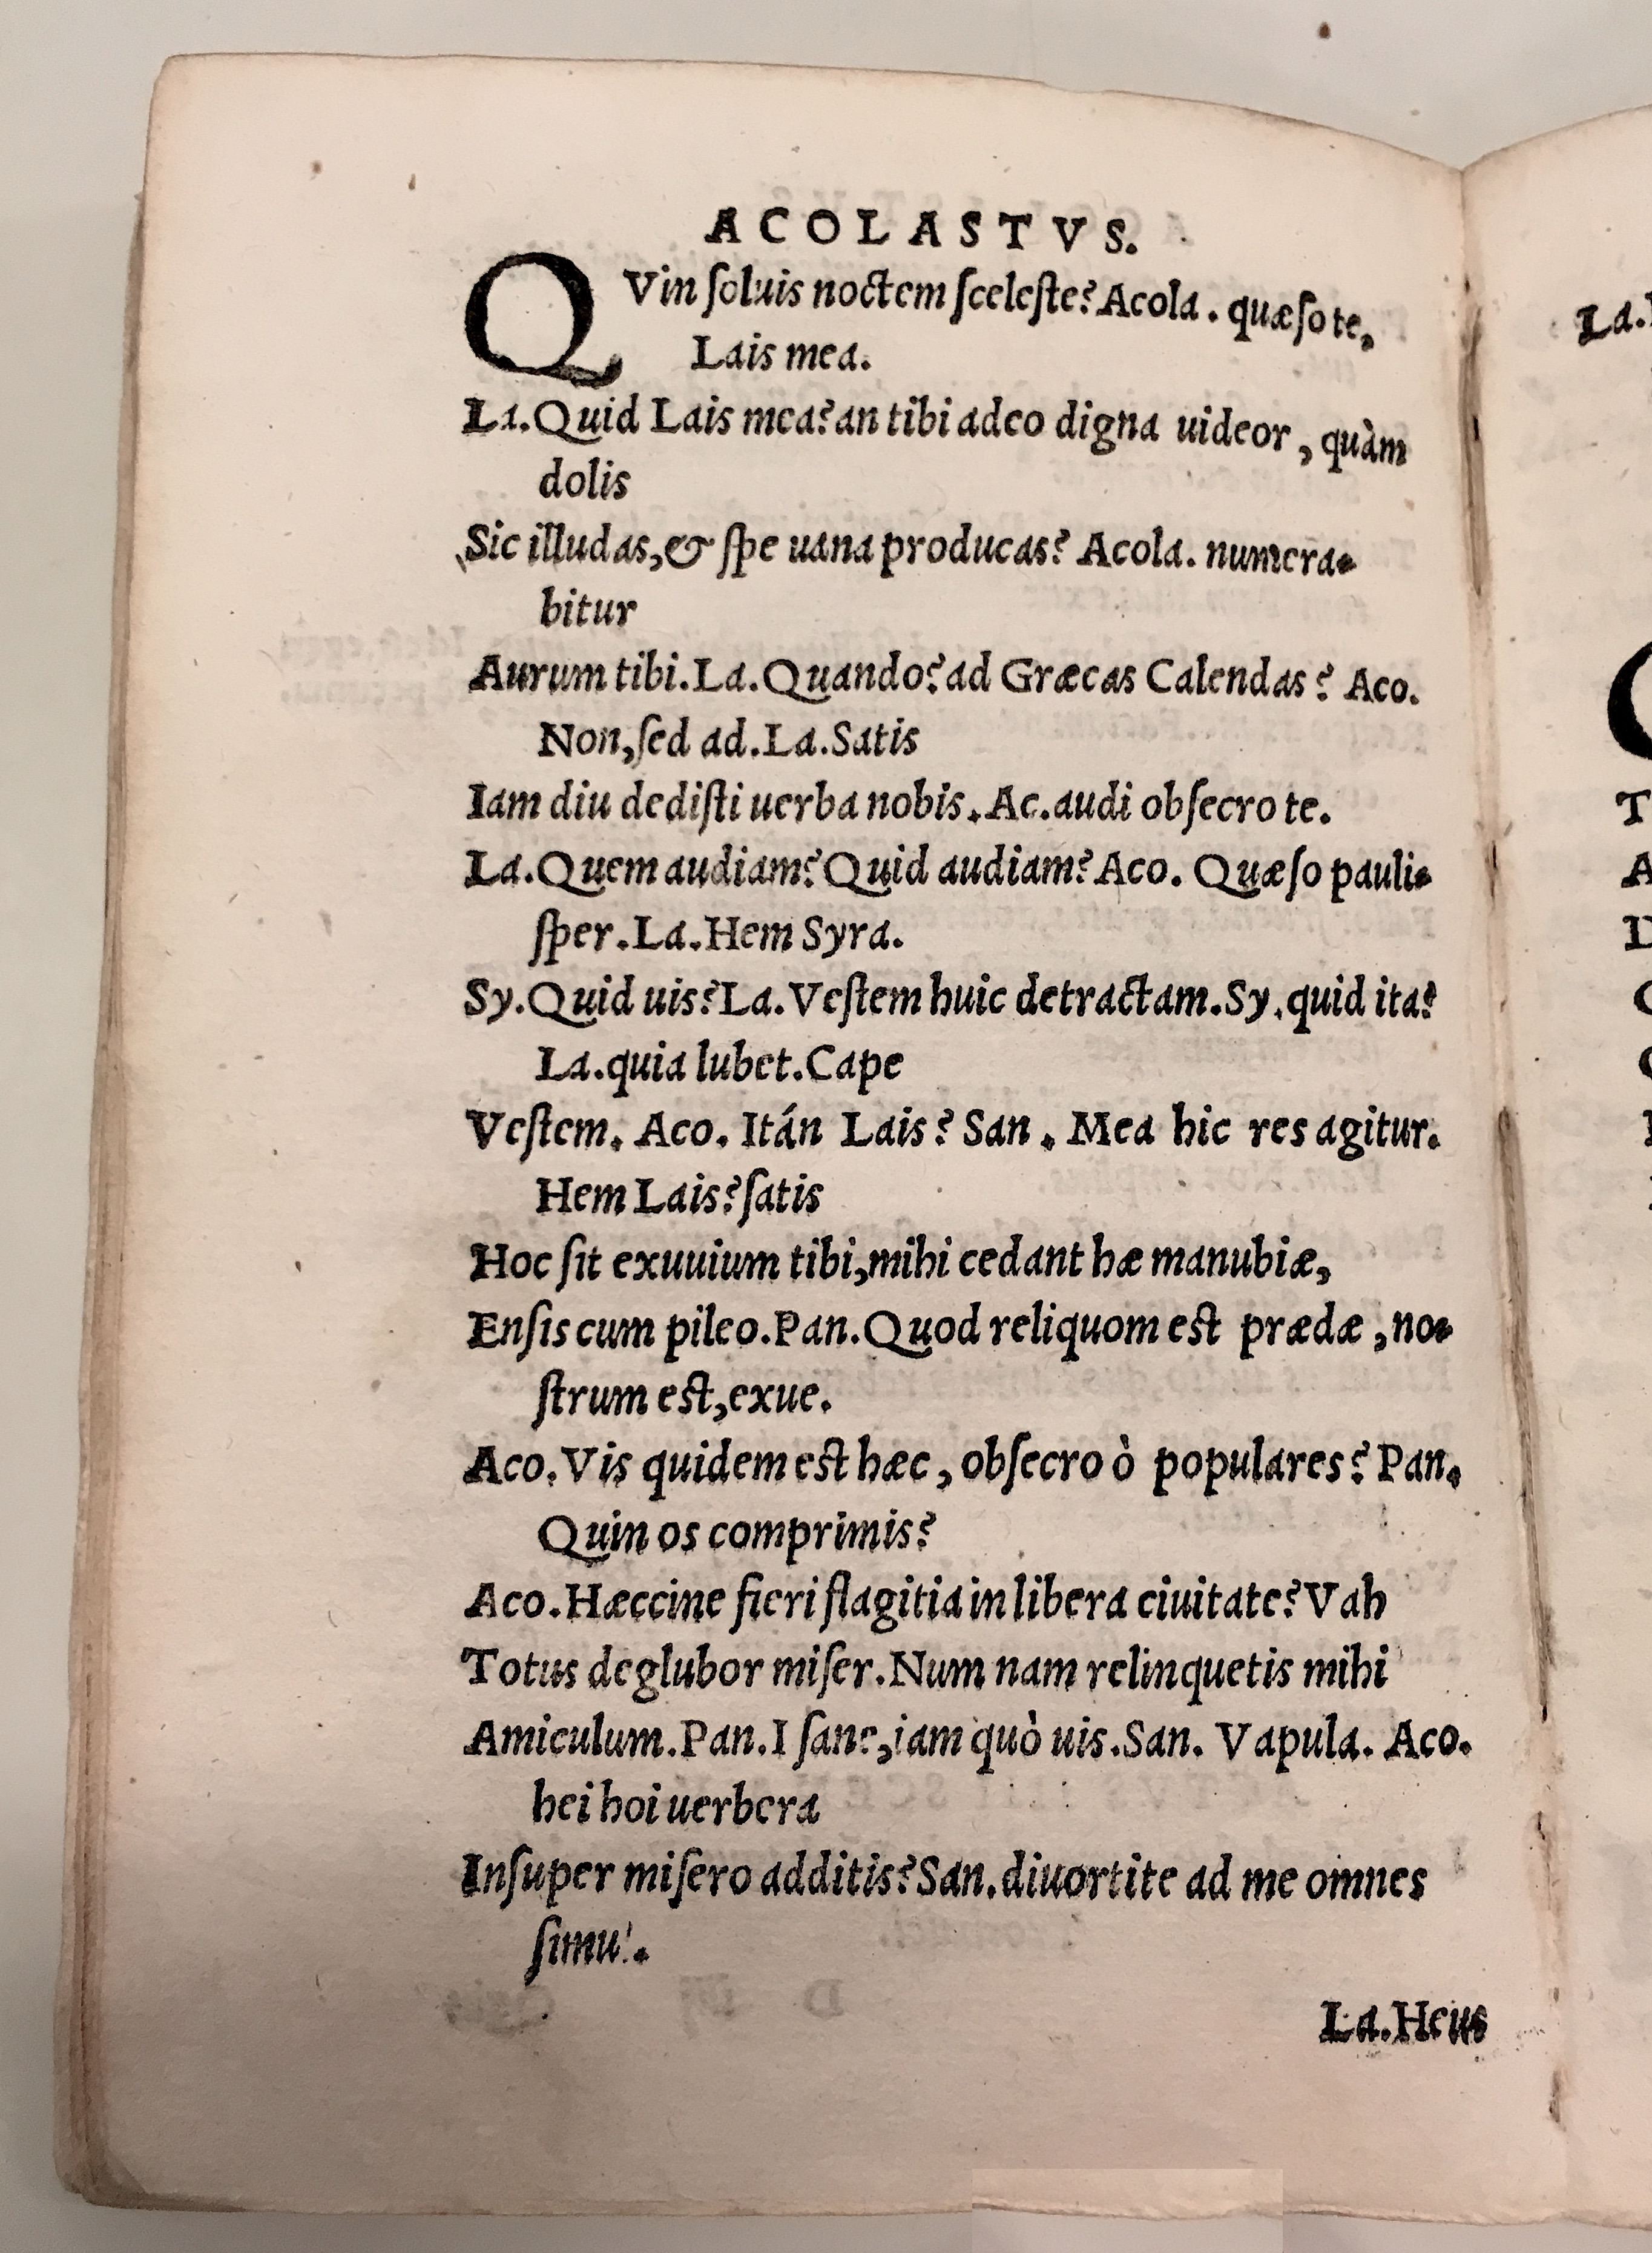 ACOLASTVS.
QVin ſoluis noctem ſceleſte? Acola. quæſo te,
Lais mea.
La. Quid Lais mea? an tibi adeo digna uideor, quàm
dolis
Sic illudas, & ſpe uana producas? Acola. numera-
bitur
Aurum tibi. La. Quando? ad Græcas Calendas? Aco.
Non, ſed ad. La. Satis
Iam diu dediſti uerba nobis. Ac. audi obſecro te.
La. Quem audiam? Quid audiam? Aco. Quæſo pauli-
ſper. La. Hem Syra.
Sy. Quid uis? La. Veſtem huic detractam. Sy. quid ita?
La. quia lubet. Cape
Veſtem. Aco. Itán Lais? San. Mea hic res agitur.
Hem Lais? ſatis
Hoc ſit exuuium tibi, mihi cedant hæ manubiæ,
Enſis cum pileo. Pan. Quod reliquom est prædæ, no-
ſtrum est, exue.
Aco. Vis quidem est hæc, obſecro ò populares? Pan.
Quin os comprimis?
Aco. Hæccine fieri flagitia in libera ciuitate? Vah
Totus deglubor miſer. Num nam relinquetis mihi
Amiculum. Pan. I ſane, iam quò uis. San. Vapula. Aco.
hei hoi uerbera
Inſuper miſero additis? San. diuortite ad me omnes
ſimul.
La. Heus
La.
T
A